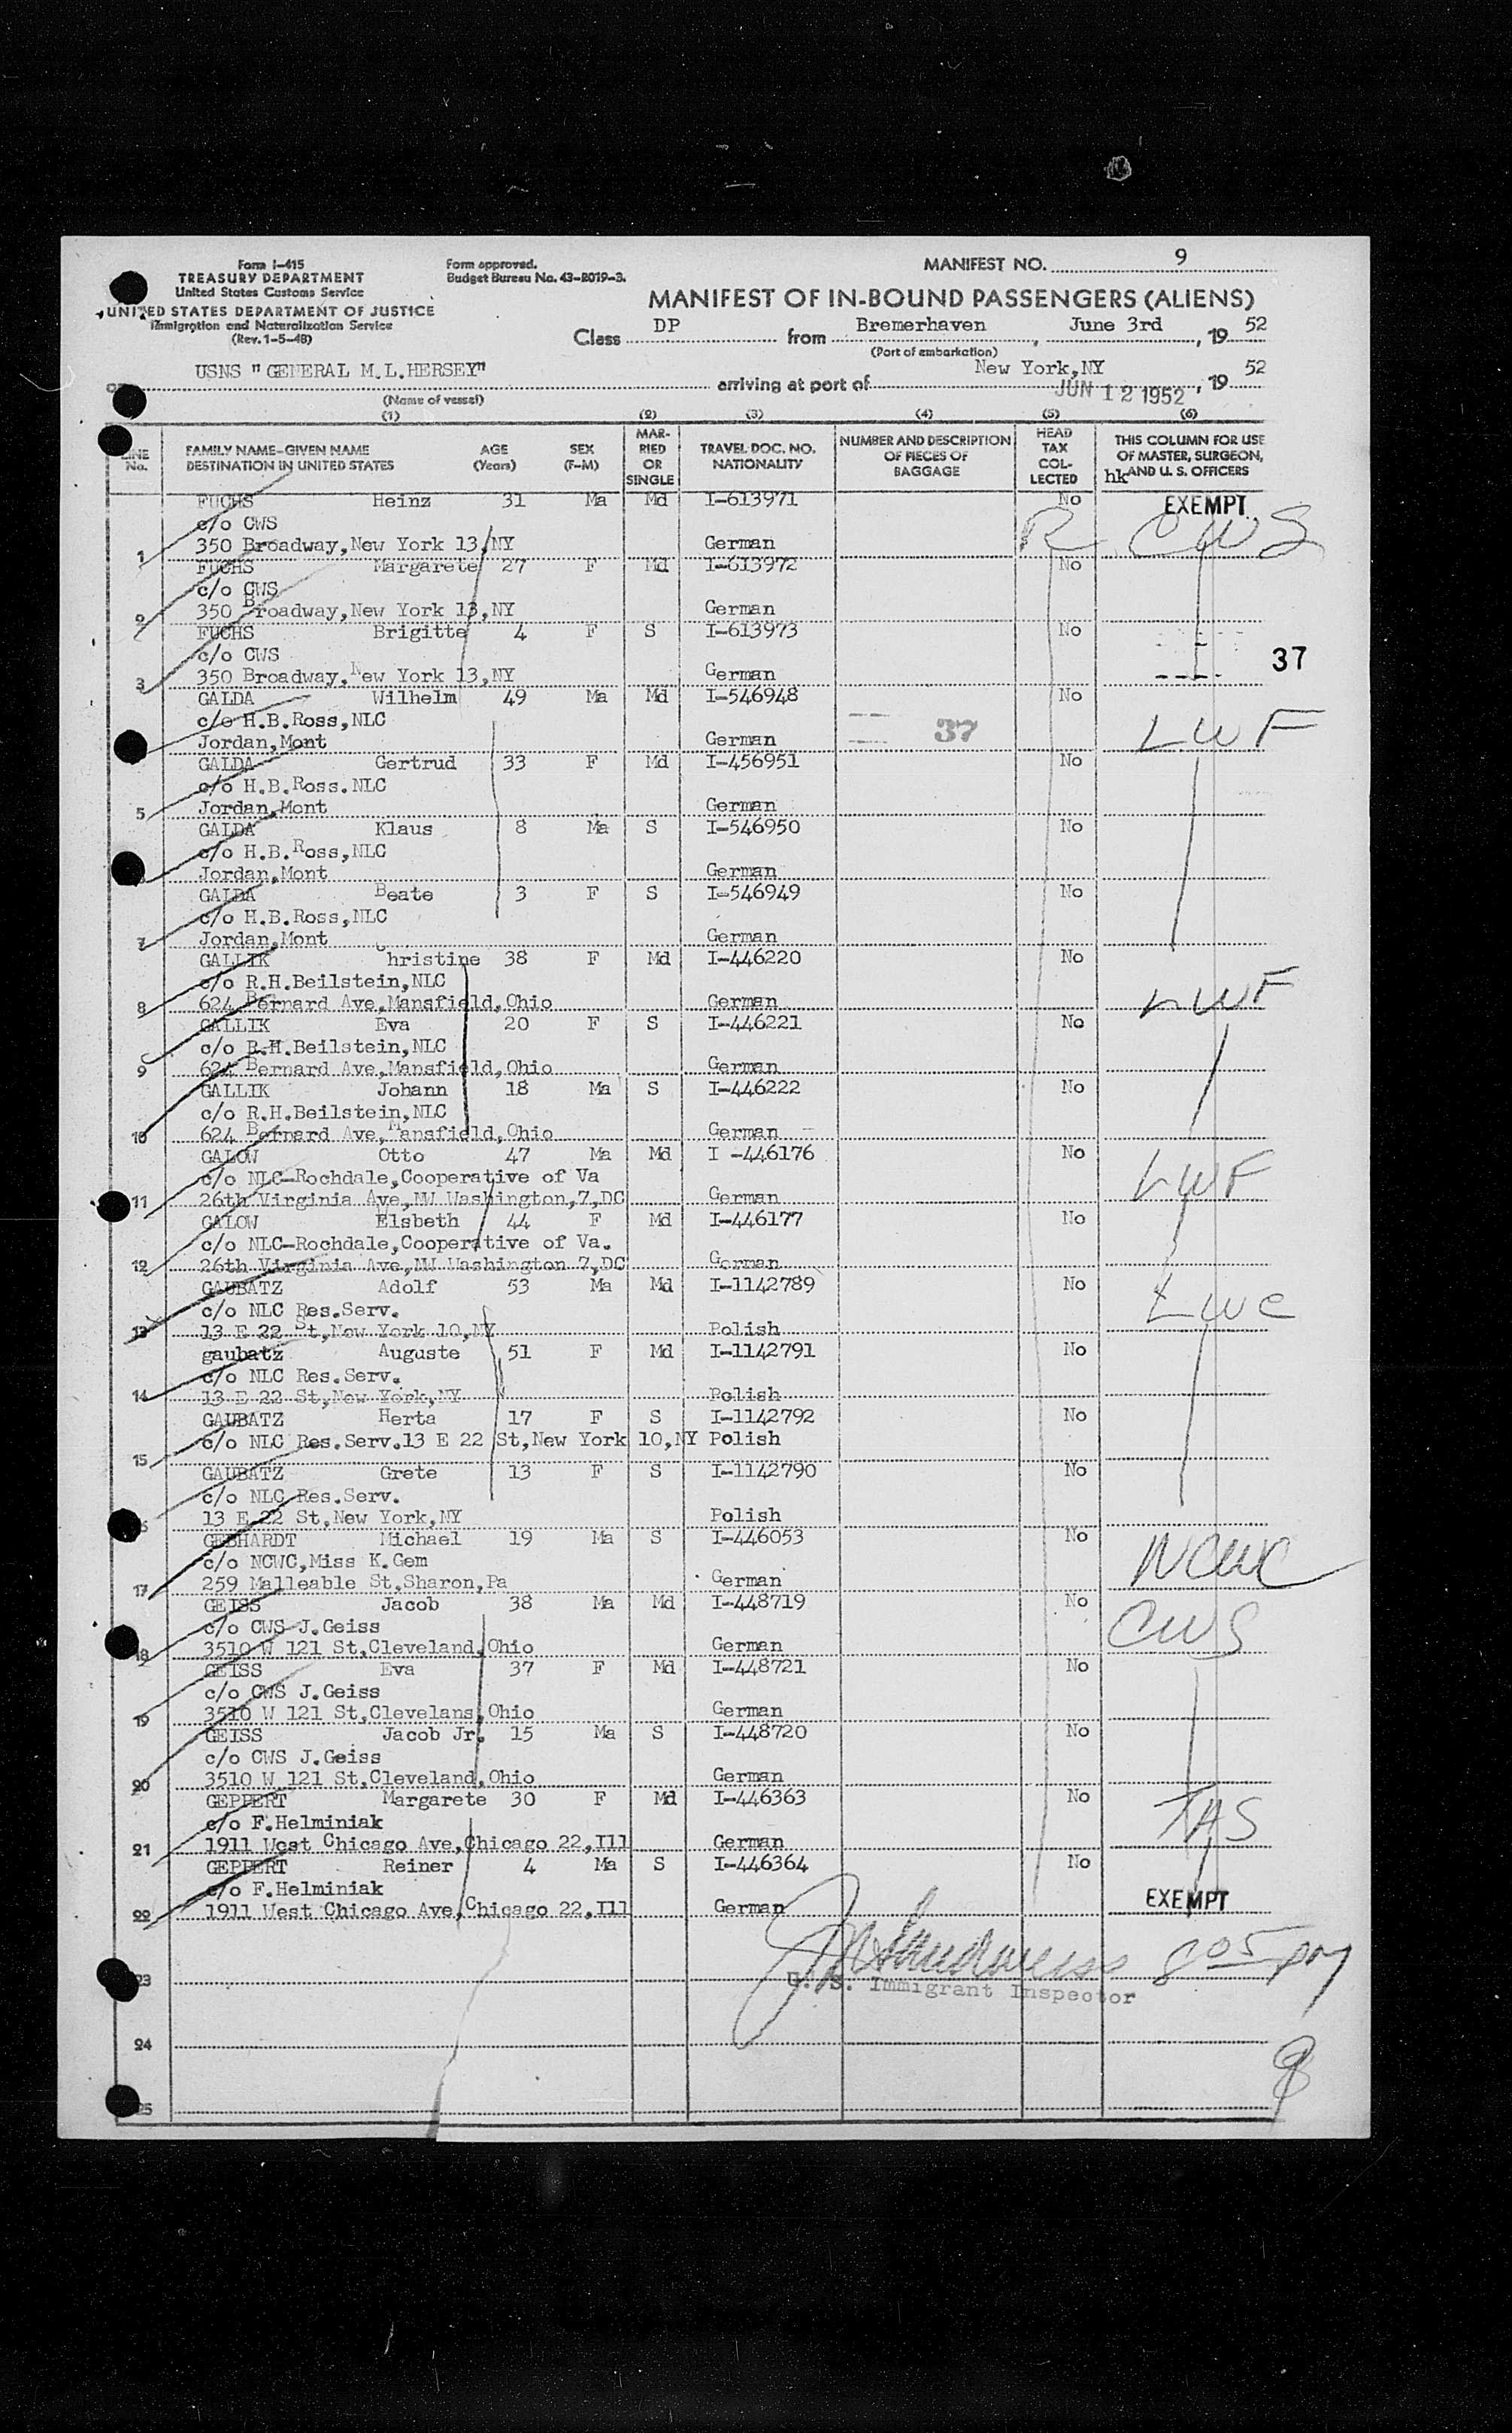 Form I-415
TREASURY DEPARTMENT
United States Customs Service
UNITED STATES DEPARTMENT OF JUSTICE
Immigration and Naturalization Service
(Rev. 1-5-48)
Form approved.
Budget Bureau No. 43-R019-3.
MANIFEST NO. 9
MANIFEST OF IN-BOUND PASSENGERS (ALIENS)
Class DP from Bremerhaven, June 3rd, 19 52
(Port of embarkation)
USNS "GENERAL M.L.HERSEY" arriving at port of New York,NY JUN 12 1952, 19 52
(Name of vessel)
(1) (2) (3) (4) (5) (6)
LINE No. FAMILY NAME-GIVEN NAME DESTINATION IN UNITED STATES AGE (Years) SEX (F-M) MARRIED OR SINGLE TRAVEL DOC. NO. NATIONALITY NUMBER AND DESCRIPTION OF PIECES OF BAGGAGE HEAD TAX COLLECTED THIS COLUMN FOR USE OF MASTER, SURGEON, AND U. S. OFFICERS
hk
FUCHS Heinz 31 Ma Md I-613971 No EXEMPT
c/o CWS R CWS
1 350 Broadway,New York 13,NY German
FUCHS Margarete 27 F Md I-613972 No
c/o CWS
2 350 Broadway,New York 13,NY German
FUCHS Brigitte 4 F S I-613973 No
c/o CWS 37
3 350 Broadway,New York 13,NY German
GALDA Wilhelm 49 Ma Md I-546948 No
c/o H.B.Ross,NLC 37 LWF
Jordan,Mont German
GALDA Gertrud 33 F Md I-456951 No
c/o H.B.Ross.NLC
5 Jordan,Mont German
GALDA Klaus 8 Ma S I-546950 No
c/o H.B.Ross,NLC
Jordan,Mont German
GALDA Beate 3 F S I-546949 No
c/o H.B.Ross,NLC
7 Jordan,Mont German
GALLIK Christine 38 F Md I-446220 No
c/o R.H.Beilstein,NLC LWF
8 624 Bernard Ave,Mansfield,Ohio German
GALLIK Eva 20 F S I-446221 No
c/o R.H.Beilstein,NLC
9 624 Bernard Ave,Mansfield,Ohio German
GALLIK Johann 18 Ma S I-446222 No
c/o R.H.Beilstein,NLC
10 624 Bernard Ave,Mansfield,Ohio German
GALOW Otto 47 Ma Md I -446176 No
c/o NLC-Rochdale,Cooperative of Va LWF
11 26th Virginia Ave,NW Washington,7,DC German
GALOW Elsbeth 44 F Md I-446177 No
c/o NLC-Rochdale,Cooperative of Va.
12 26th Virginia Ave,NW Washington 7,DC German
GAUBATZ Adolf 53 Ma Md I-1142789 No
c/o NLC Res.Serv. LWC
13 13 E 22 St,New York 10,NY Polish
gaubatz Auguste 51 F Md I-1142791 No
c/o NLC Res.Serv.
14 13 E 22 St,New York,NY Polish
GAUBATZ Herta 17 F S I-1142792 No
c/o NLC Res.Serv.13 E 22 St,New York 10,NY Polish
15
GAUBATZ Grete 13 F S I-1142790 No
c/o NLC Res.Serv.
13 E 22 St,New York,NY Polish
GEBHARDT Michael 19 Ma S I-446053 No
c/o NCWC,Miss K.Gem NCWC
17 259 Malleable St,Sharon,Pa German
GEISS Jacob 38 Ma Md I-448719 No
c/o CWS J.Geiss CWS
18 3510 W 121 St,Cleveland,Ohio German
GEISS Eva 37 F Md I-448721 No
c/o CWS J.Geiss
19 3510 W 121 St,Clevelans,Ohio German
GEISS Jacob Jr. 15 Ma S I-448720 No
c/o CWS J.Geiss
20 3510 W 121 St,Cleveland,Ohio German
GEPPERT Margarete 30 F Md I-446363 No
c/o F.Helminiak TAS
21 1911 West Chicago Ave,Chicago 22,Ill German
GEPPERT Reiner 4 Ma S I-446364 No
c/o F.Helminiak EXEMPT
22 1911 West Chicago Ave,Chicago 22,Ill German
8 05 pm
23 U. S. Immigrant Inspector
24
25